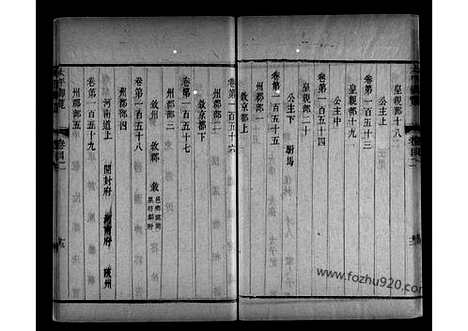 皇親部十八
卷第一百五十三
公主上
皇親部十九
公主中
卷第一百五十四
皇親部二十
公主下　駙馬
卷第一百五十五
州郡部一
敘京都上
卷第一百五十六
州郡部二
敘京都下
卷第一百五十七
州郡部三
敘州　敘郡　敘
卷第一百五十八
州郡部四
河南道上　開封府　河南府　陝州
卷第一百五十九
州郡部五
太平御覽
www.fozhu920.com